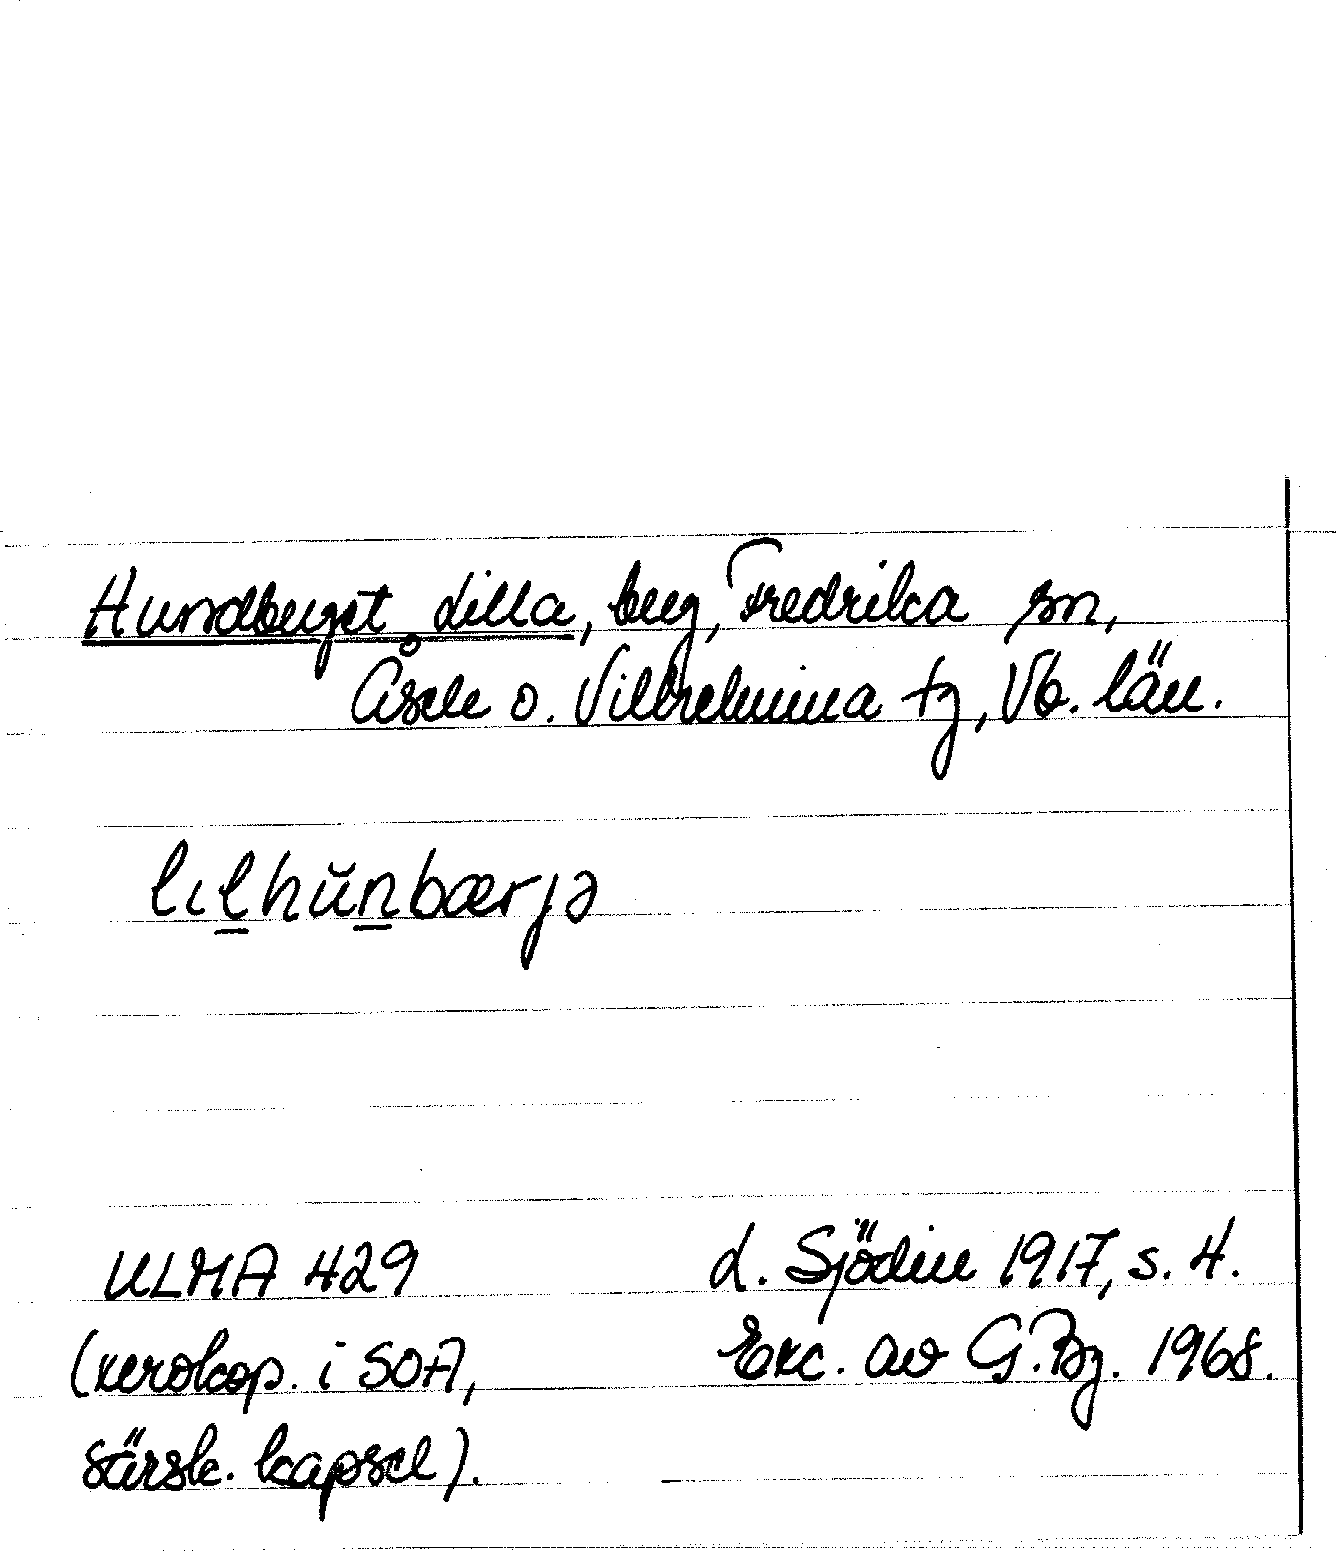 Hundberget, Lilla, berg, Fredrika sn,
Åsele o. Vilhelmina tg, Vb. län.
lıl̲hŭn̲bærjə
ULMA 429
(xerokop. i SOA,
särsk. kapsel).
L. Sjödin 1917, s. 4.
Exc. av G.Bg. 1968.